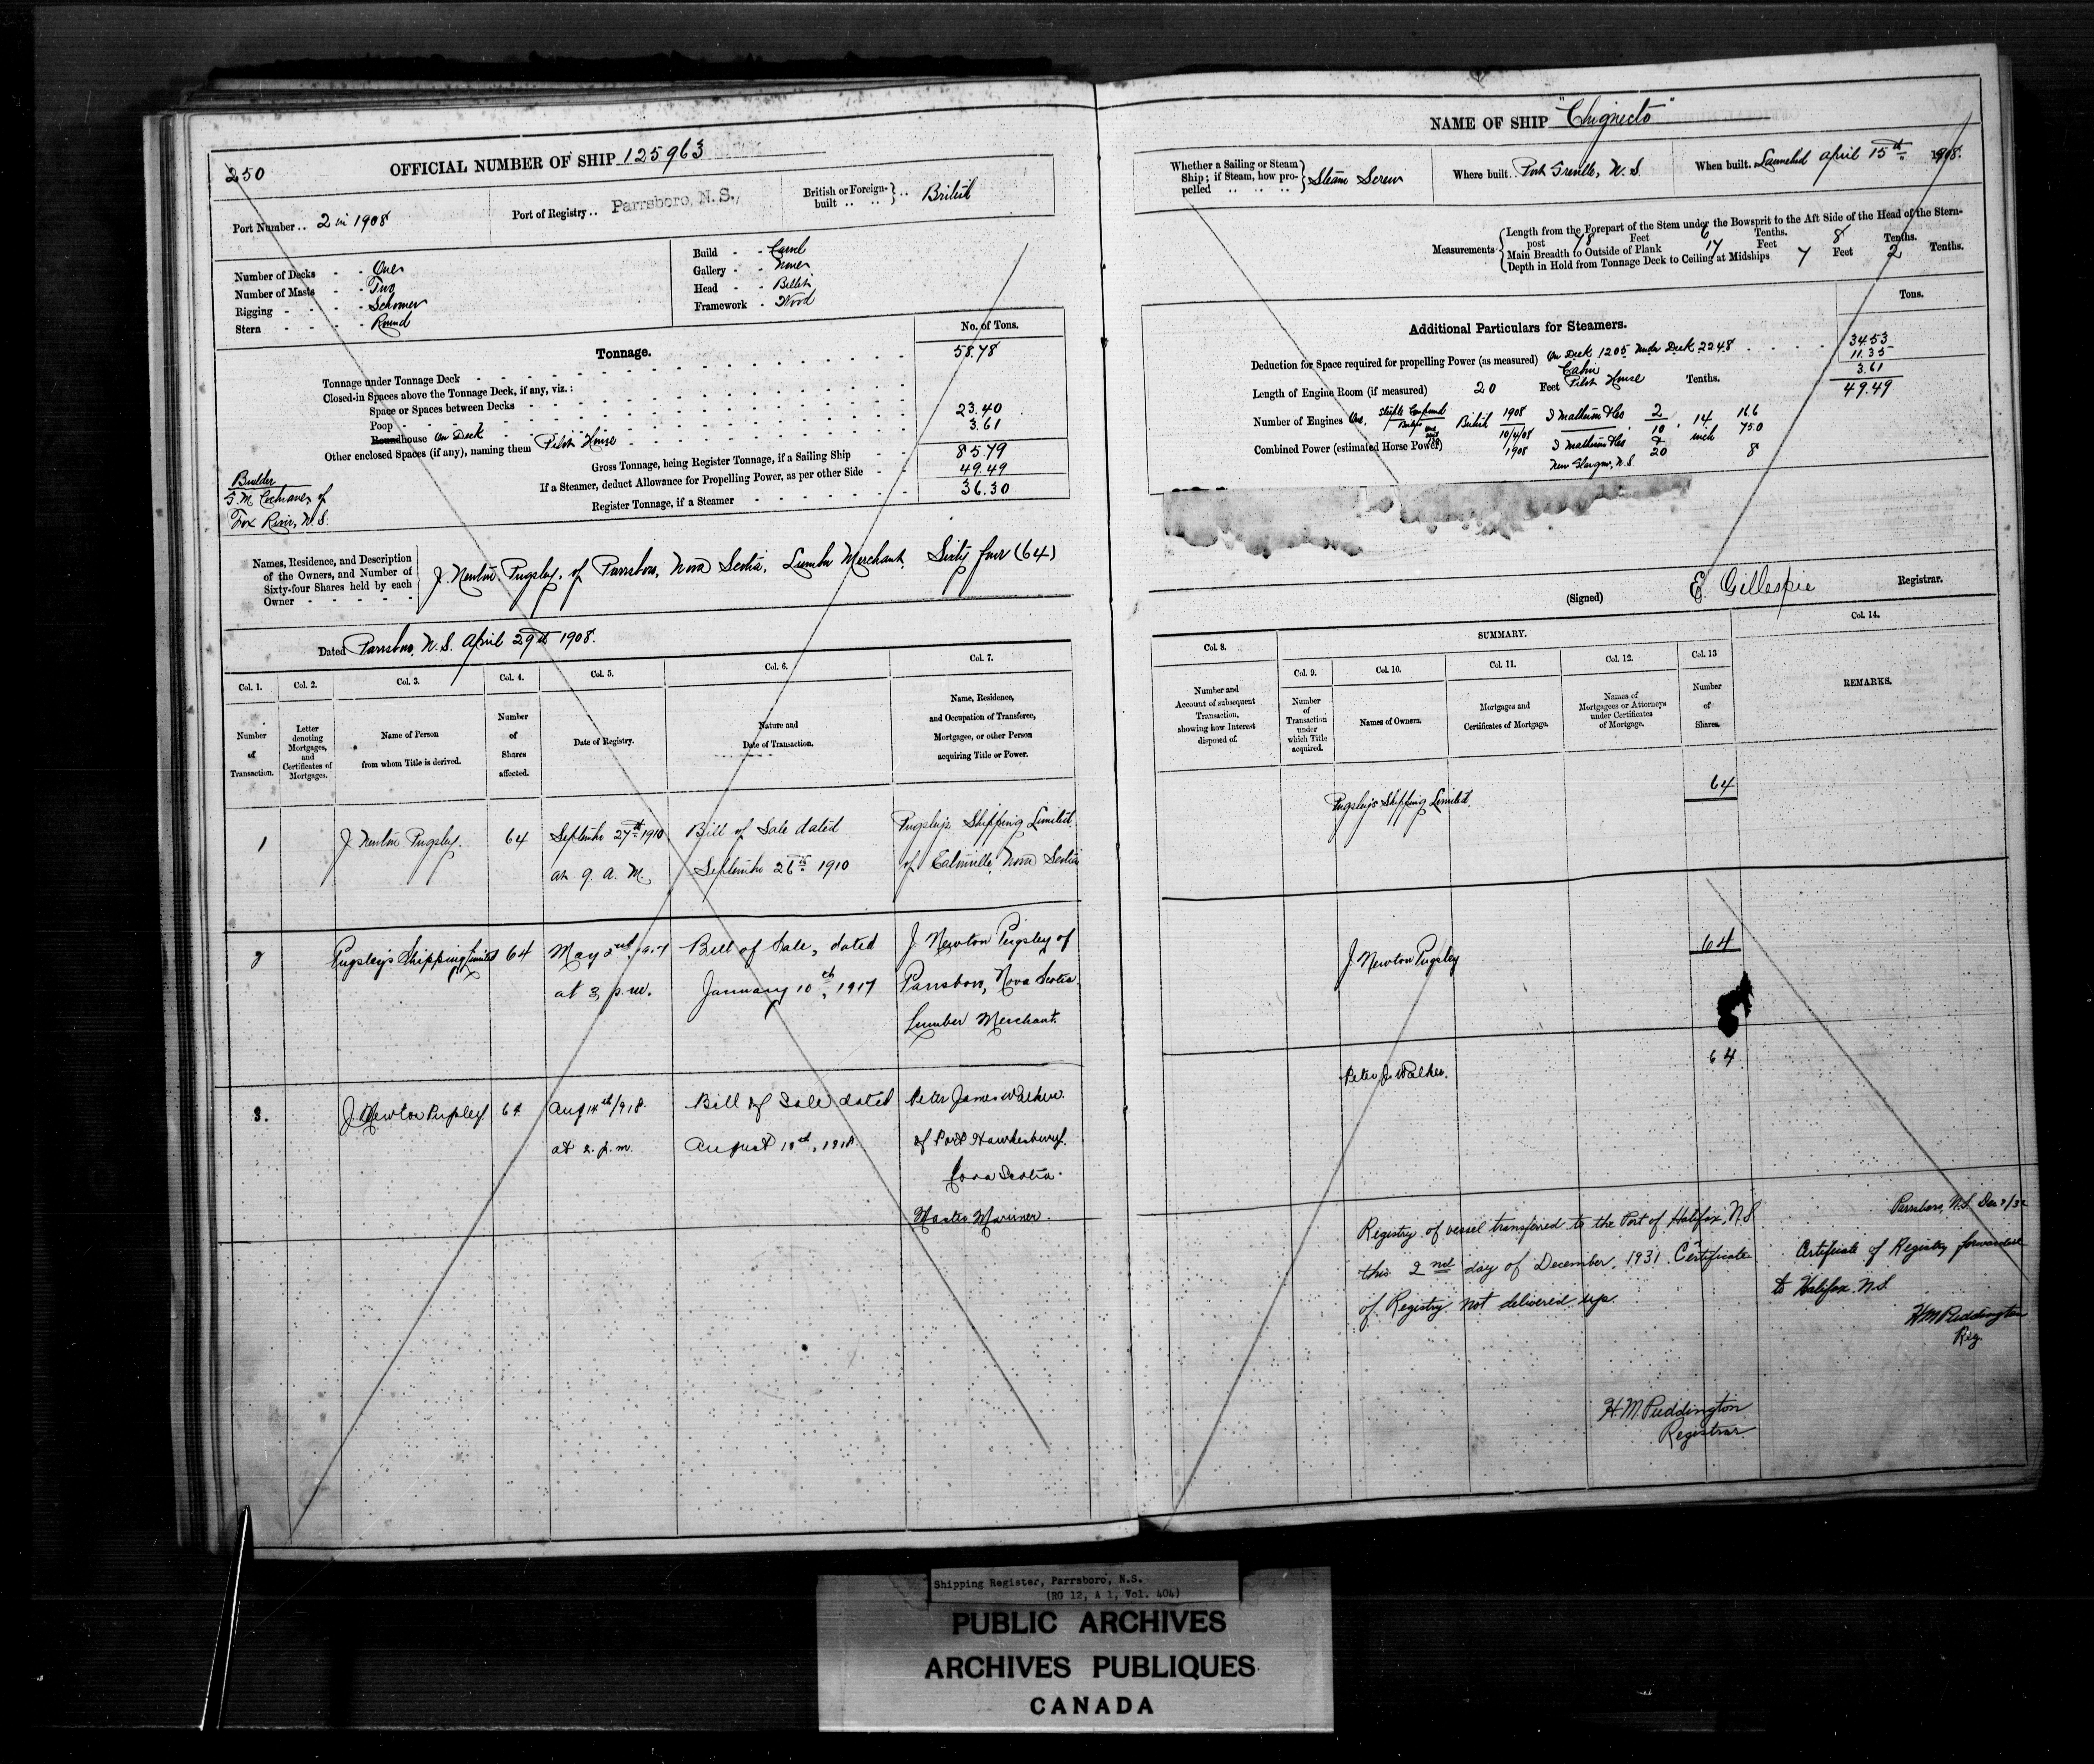 250
OFFICIAL NUMBER OF SHIP 125963
Port Number .. 2 in 1908
Port of Registry .. Parrsboro, N. S.,
British or Foreign-built .. .. } .. British
Number of Decks - - One
Number of Masts - - Two
Rigging - - - - Schooner
Stern - - - - Round
Build - - Carvel
Gallery - - None
Head - - Billet
Framework - Wood
Tonnage.
No. of Tons.
Tonnage under Tonnage Deck 58.78
Closed-in Spaces above the Tonnage Deck, if any, viz.:
Space or Spaces between Decks
Poop
Roundhouse On Deck 23.40
Other enclosed Spaces (if any), naming them Pilot House 3.61
Gross Tonnage, being Register Tonnage, if a Sailing Ship 85.79
If a Steamer, deduct Allowance for Propelling Power, as per other Side 49.49
Register Tonnage, if a Steamer 36.30
Builder
Cochrane of
Fox River, N.S.
Names, Residence, and Description of the Owners, and Number of Sixty-four Shares held by each Owner
J. Newton Pugsley, of Parrsboro, Nova Scotia, Lumber Merchant, Sixty four (64)
Dated Parrsboro, N. S. April 29th 1908.
Col. 1. Col. 2. Col. 3. Col. 4. Col. 5. Col. 6. Col. 7.
Number of Transaction.
Letter denoting Mortgages, and Certificates of Mortgages.
Name of Person from whom Title is derived.
Number of Shares affected.
Date of Registry.
Nature and Date of Transaction.
Name, Residence, and Occupation of Transferee, Mortgagee, or other Person acquiring Title or Power.
1 J. Newton Pugsley. 64 September 27th 1910 Bill of Sale dated Pugsley's Shipping Limited
at 9. a. M. September 26th 1910 of Eatonville, Nova Scotia
2 Pugsley's Shipping Limited 64 May 2nd, 1917 Bill of Sale, dated J. Newton Pugsley of
at 3 p.m. January 10th, 1917 Parrsboro, Nova Scotia.
Lumber Merchant.
3. J. Newton Pugsley 64 Aug 14th/918. Bill of Sale dated Peter James Walker.
at 2. p.m. August 1918. of Port Hawkesbury.
Nova Scotia.
Master Mariner.
NAME OF SHIP "Chignecto"
Whether a Sailing or Steam Ship; if Steam, how propelled } Steam Screw
Where built.. Port Greville, N. S.
When built.. Launched April 15th 1908.
Measurements
Length from the Forepart of the Stem under the Bowsprit to the Aft Side of the Head of the Stern-post 78 Feet 6 Tenths.
Main Breadth to Outside of Plank 17 Feet 8 Tenths.
Depth in Hold from Tonnage Deck to Ceiling at Midships 7 Feet 2 Tenths.
Additional Particulars for Steamers.
Tons.
Deduction for Space required for propelling Power (as measured) On Deck 12.05 Under Deck 22.48 34.53
Cabin 11.35
Length of Engine Room (if measured) 20 Feet Pilot House Tenths. 3.61
49.49
Number of Engines One, Steeple Compound British 1908 I Matheson & Co 2/10 14 inch 16.6
Combined Power (estimated Horse Power) 1908 I Matheson & Co 8
New Glasgow, N.S.
(Signed) E. Gillespie Registrar.
SUMMARY.
Col. 8. Col. 9. Col. 10. Col. 11. Col. 12. Col. 13 Col. 14.
Number and Account of subsequent Transaction, showing how Interest disposed of.
Number of Transaction under which Title acquired.
Names of Owners.
Mortgages and Certificates of Mortgage.
Names of Mortgagees or Attorneys under Certificates of Mortgage.
Number of Shares.
REMARKS.
Pugsley's Shipping Limited. 64
J. Newton Pugsley 64
Peter J. Walker. 64
Registry of vessel transferred to the Port of Halifax, N.S
this 2nd day of December, 1931. Certificate
of Registry not delivered up.
H. M. Puddington
Registrar
Parrsboro, N.S. Dec
Certificate of Registry forwarded
to Halifax. N.S.
H M Puddington
Reg.
Shipping Register, Parrsboro, N.S.
(RG 12, A 1, Vol. 404)
PUBLIC ARCHIVES
ARCHIVES PUBLIQUES
CANADA